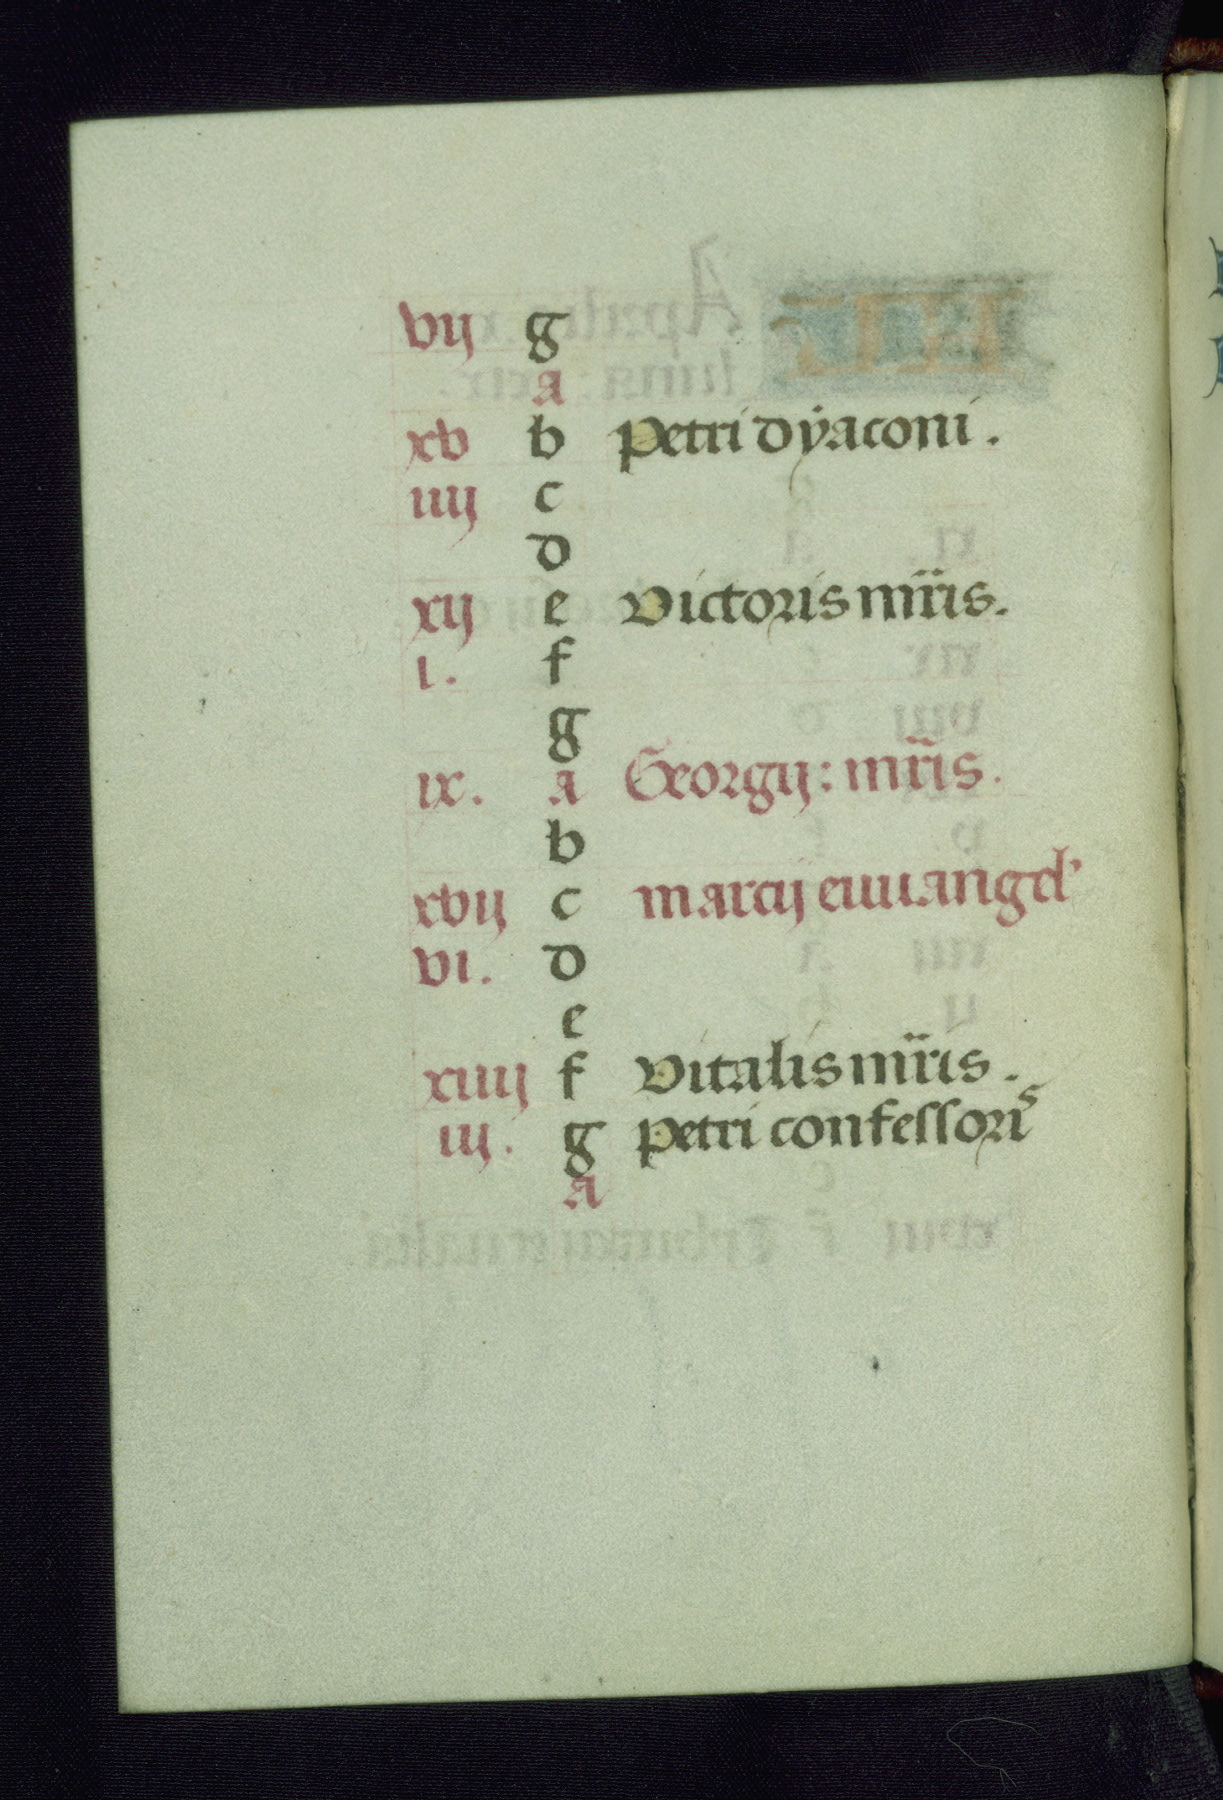 vij g
a
xv b Petri dÿaconi .
iiij c
d
xij e Victoris mr̃is.
i. f
g
ix. a Georgij: mr̃is.
b
xvij c marcij euuangel'
vi. d
e
xiiij f Vitalis mr̃is .
iij. g Petri confessoris
a